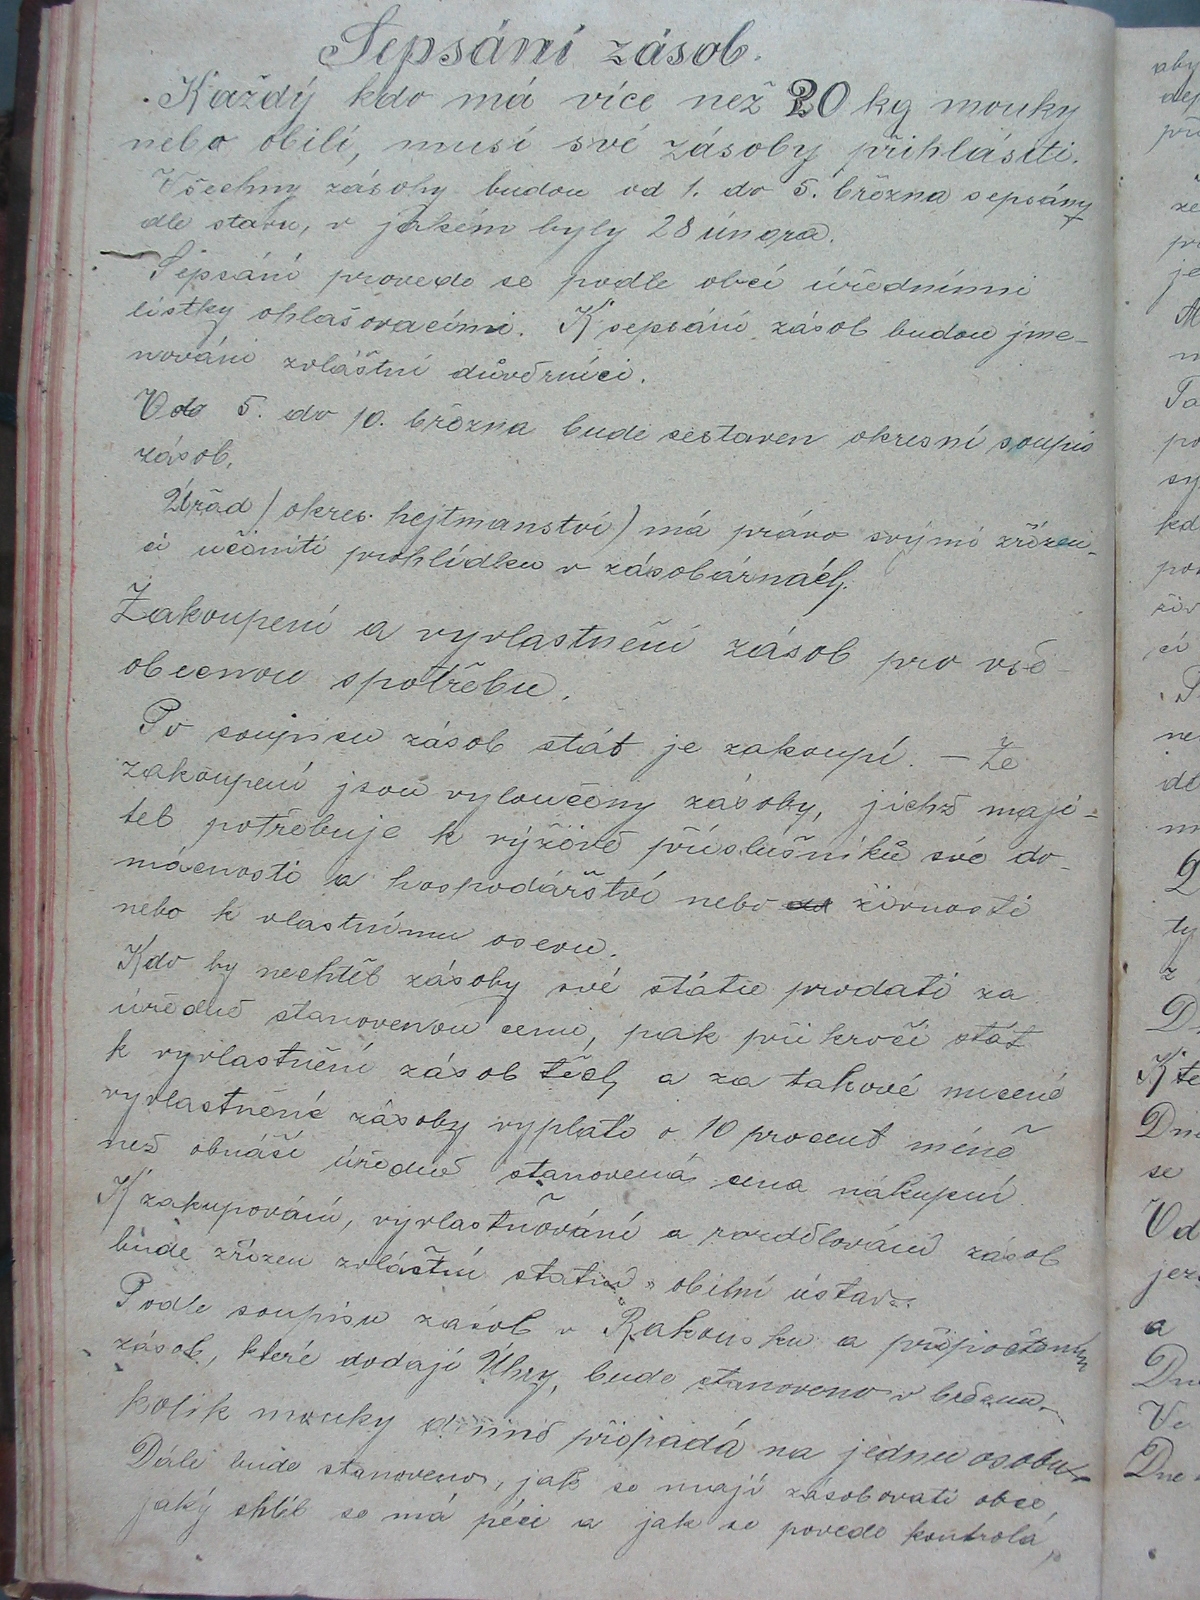 Sepsání zásob.
Každý kdo má více než 20 kg mouky
nebo obilí, musí své zásoby přihlásiti.
Všechny zásoby budou od 1. do 5. března sepsány
dle stavu, v jakém byly 28 února.
Sepsání provede se podle obcí úředními
lístky ohlašovacími. K sepsání zásob budou jme-
nováni zvláštní důvěrníci.
Od 5. do 10. března bude sestaven okresní soupis
zásob.
Úřad (okres. hejtmanství) má právo svými zřízen-
ci učiniti prohlídku v zásobárnách.
Zakoupení a vyvlastnění zásob pro vše-
obecnou spotřebu.
Po soupisu zásob stát je zakoupí. – Ze
zakoupení jsou vyloučeny zásoby, jichž maji-
tel potřebuje k výživě příslušníků své do-
mácnosti a hospodářství nebo živnosti
nebo k vlastnímu osevu.
Kdo by nechtěl zásoby své státu prodati za
úředně stanovenou cenu, pak přikročí stát
k vyvlastnění zásob těch a za takové nuceně
vyvlastněné zásoby vyplatí o 10 procent méně
než obnáší úředně stanovená cena nákupní.
K zakupování, vyvlastňování a rozdělování zásob
bude zřízen zvláštní státní „obilní ústav".
Podle soupisu zásob v Rakousku a připočtením
zásob, které dodají Uhry, bude stanoveno v březnu,
kolik mouky denně připadá na jednu osobu.
Dále bude stanoveno, jak se mají zásobovati obce,
jaký chléb se má péci a jak se povede kontrola,